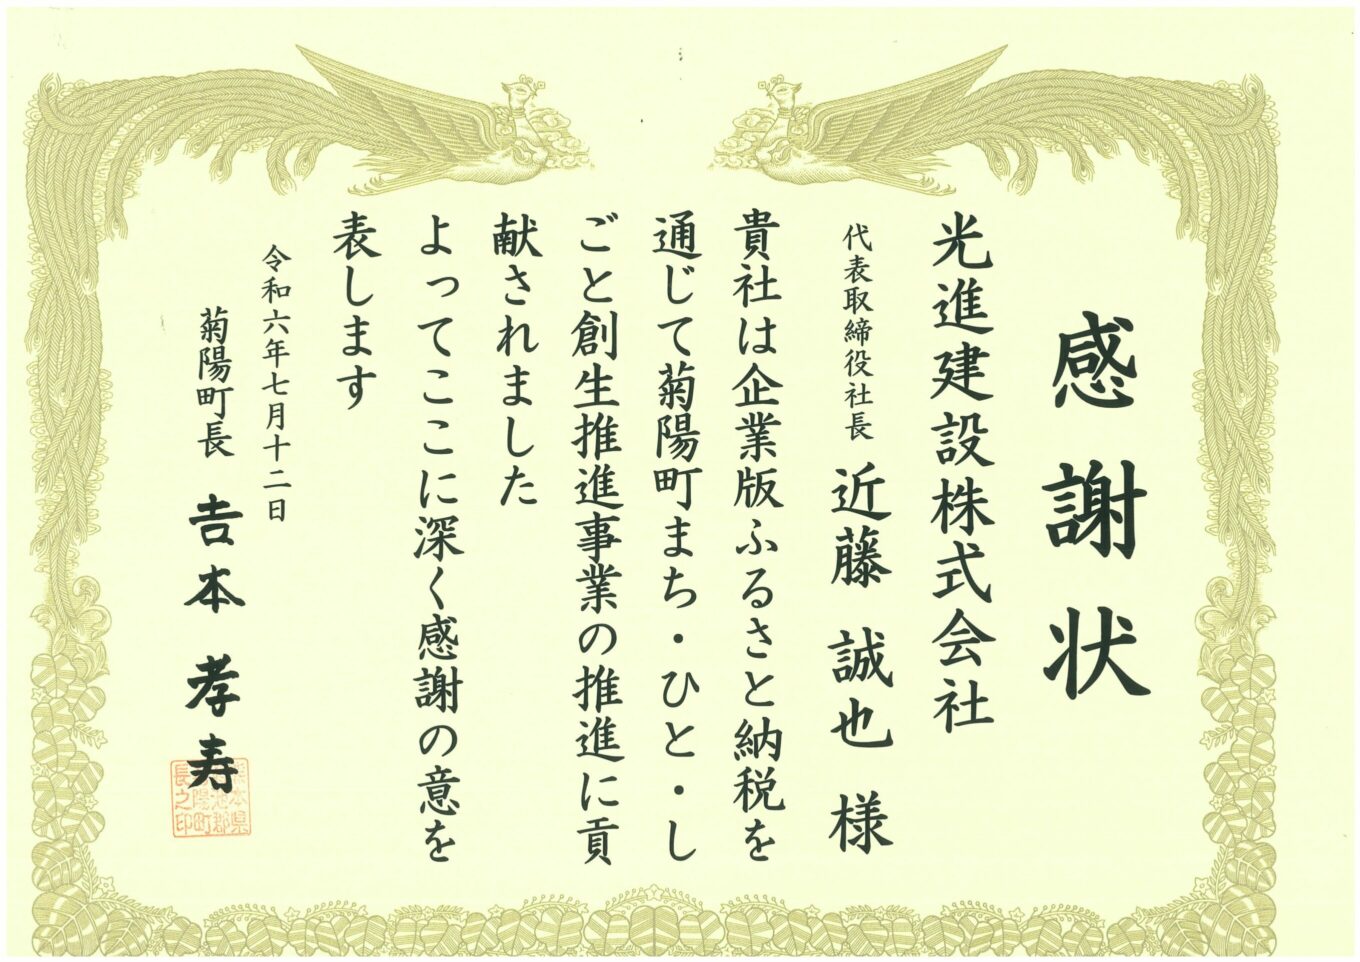 感謝状
光進建設株式会社
代表取締役社長 近藤 誠也 様
貴社は企業版ふるさと納税を
通じて菊陽町まち・ひと・し
ごと創生推進事業の推進に貢
献されました
よってここに深く感謝の意を
表します
令和六年七月十二日
菊陽町長 𠮷本 孝寿
熊本県
菊池郡
菊陽町
長之印